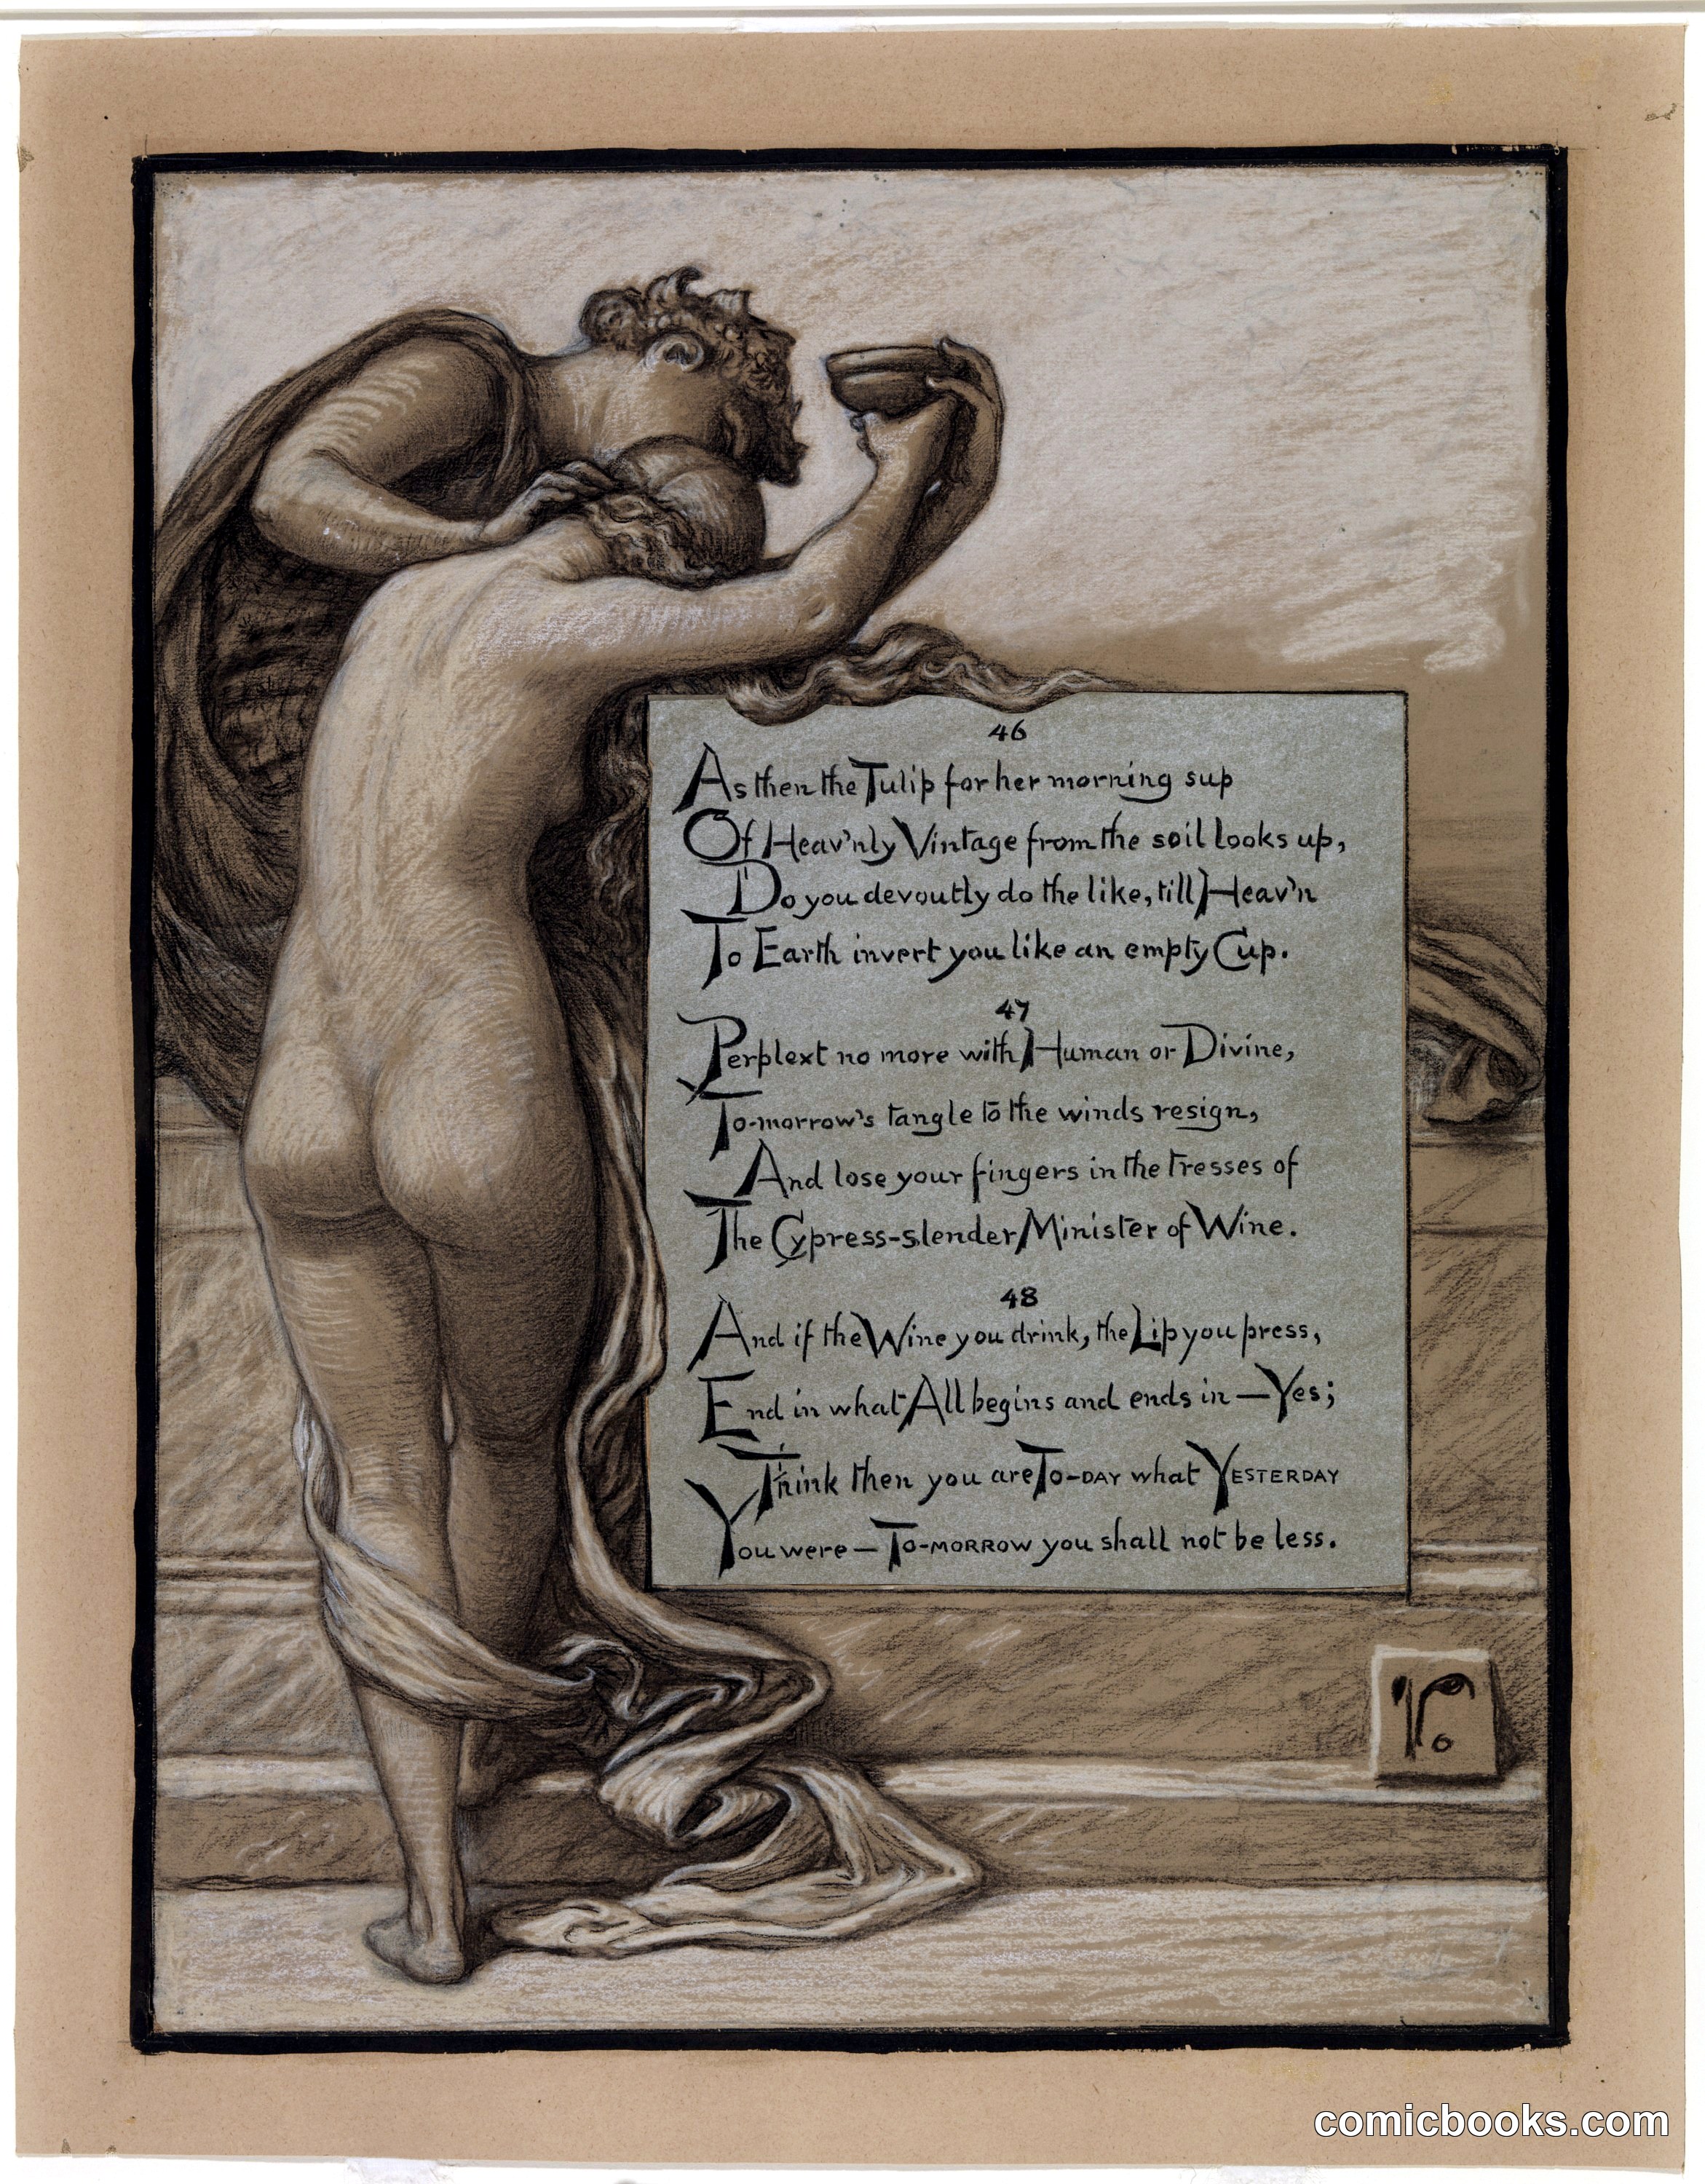 46
As then the Tulip for her morning sup
Of Heav'nly Vintage from the soil looks up,
Do you devoutly do the like, till Heav'n
To Earth invert you like an empty Cup.
47
Perplext no more with Human or Divine,
To-morrow's tangle to the winds resign,
And lose your fingers in the tresses of
The Cypress-slender Minister of Wine.
48
And if the Wine you drink, the Lip you press,
End in what All begins and ends in — Yes;
Think then you are To-DAY what YESTERDAY
You were — To-MORROW you shall not be less.
comicbooks.com